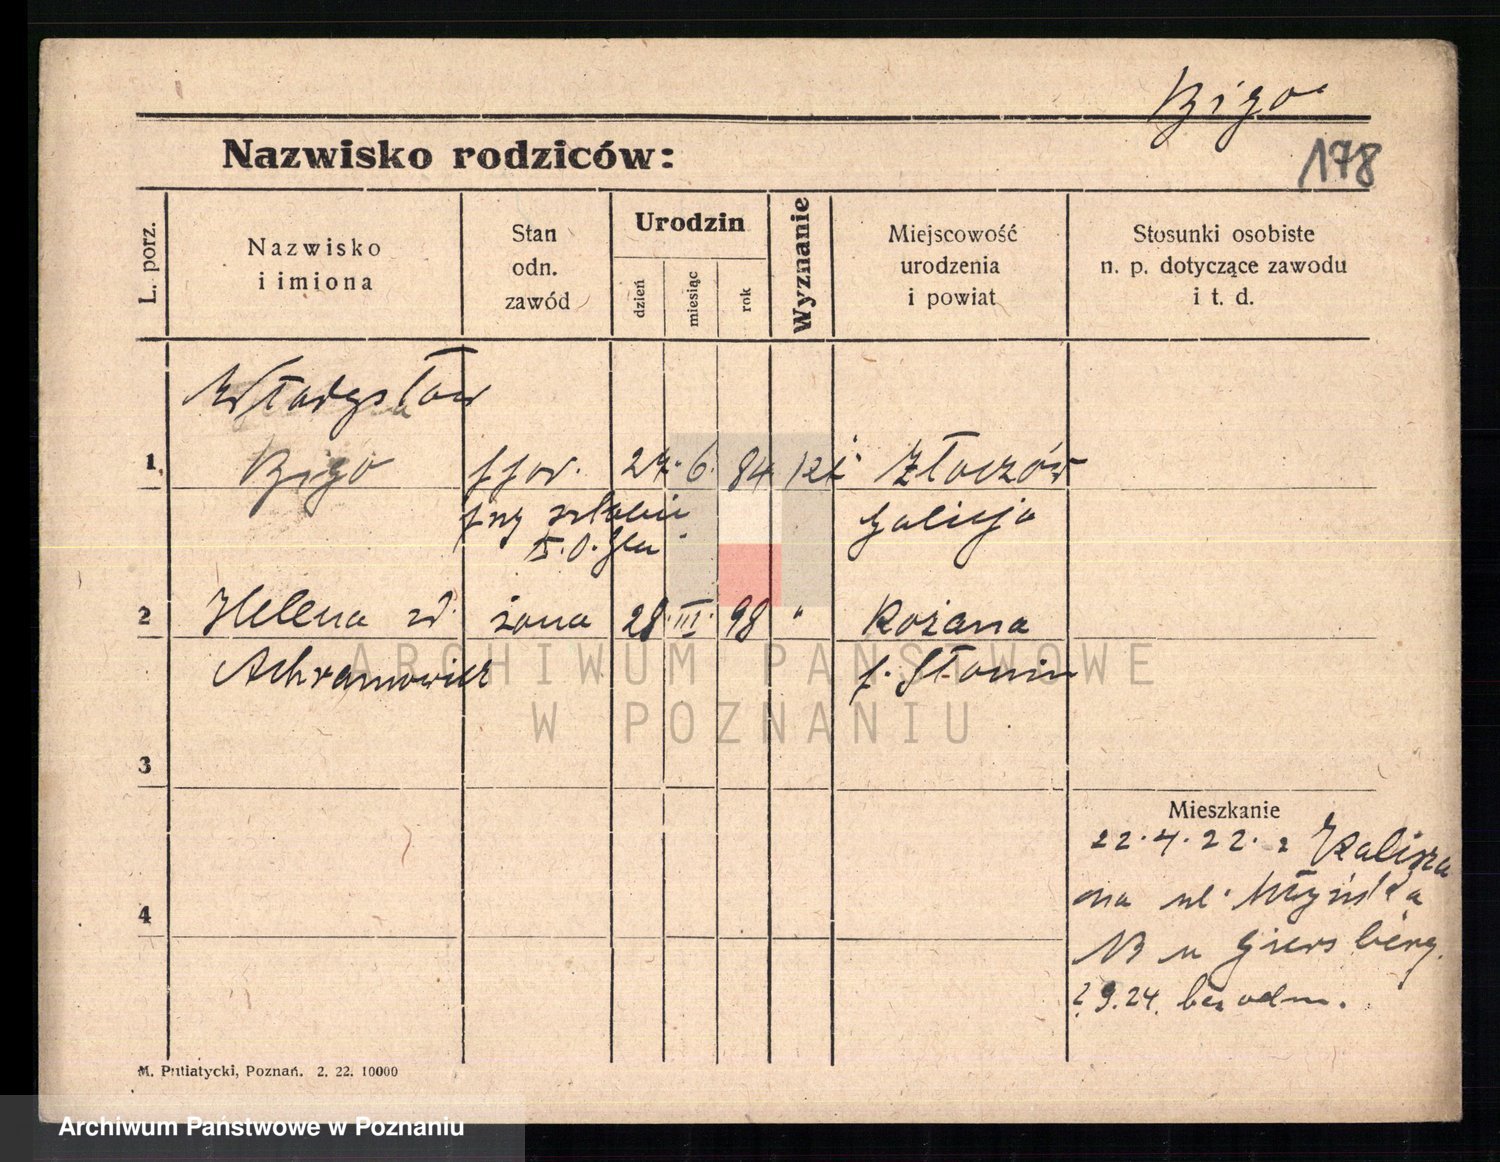 Bigo
178
Nazwisko rodziców:
L. porz.
Nazwisko
i imiona
Stan
odn.
zawód
Urodzin
dzień
miesiąc
rok
Wyznanie
Miejscowość
urodzenia
i powiat
Stosunki osobiste
n. p. dotyczące zawodu
i t. d.
Władysław
1 Bigo ppor. 27. 6. 84 rzk Złoczów
przy sztabie Galicja
D.O.Gen
2 Helena zd. żona 28 III. 98 " Rożana
Achramowicz p. Słonim
3
Mieszkanie
22.4.22. z Kalisza
na ul. Młyńska
13 u Giersberg.
4
2 9.24. bez odm.
M. Putiatycki, Poznań. 2. 22. 10000
ARCHIWUM PAŃSTWOWE
W POZNANIU
Archiwum Państwowe w Poznaniu